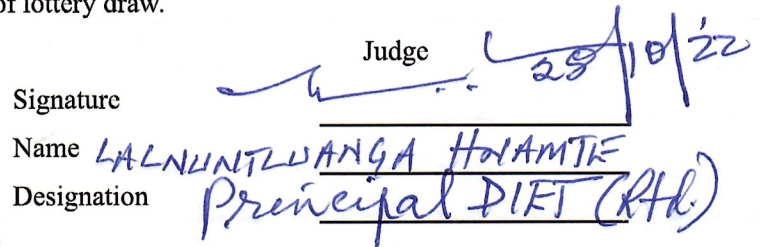 of lottery draw.
Judge
28/10/'22
Signature
Name LALNUNTLUANGA HNAMTE
Designation Principal DIET (Rtd.)